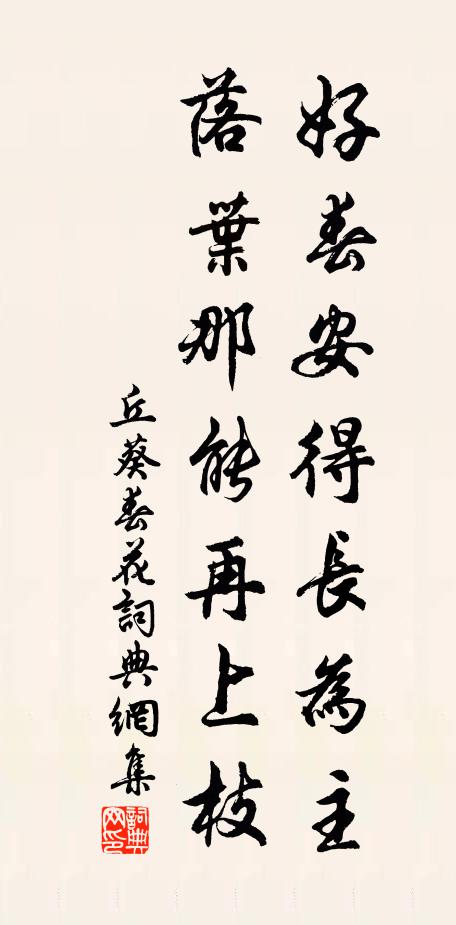 好春安得長為主
落葉那能再上枝
丘葵春花詞典網集
詞典网印